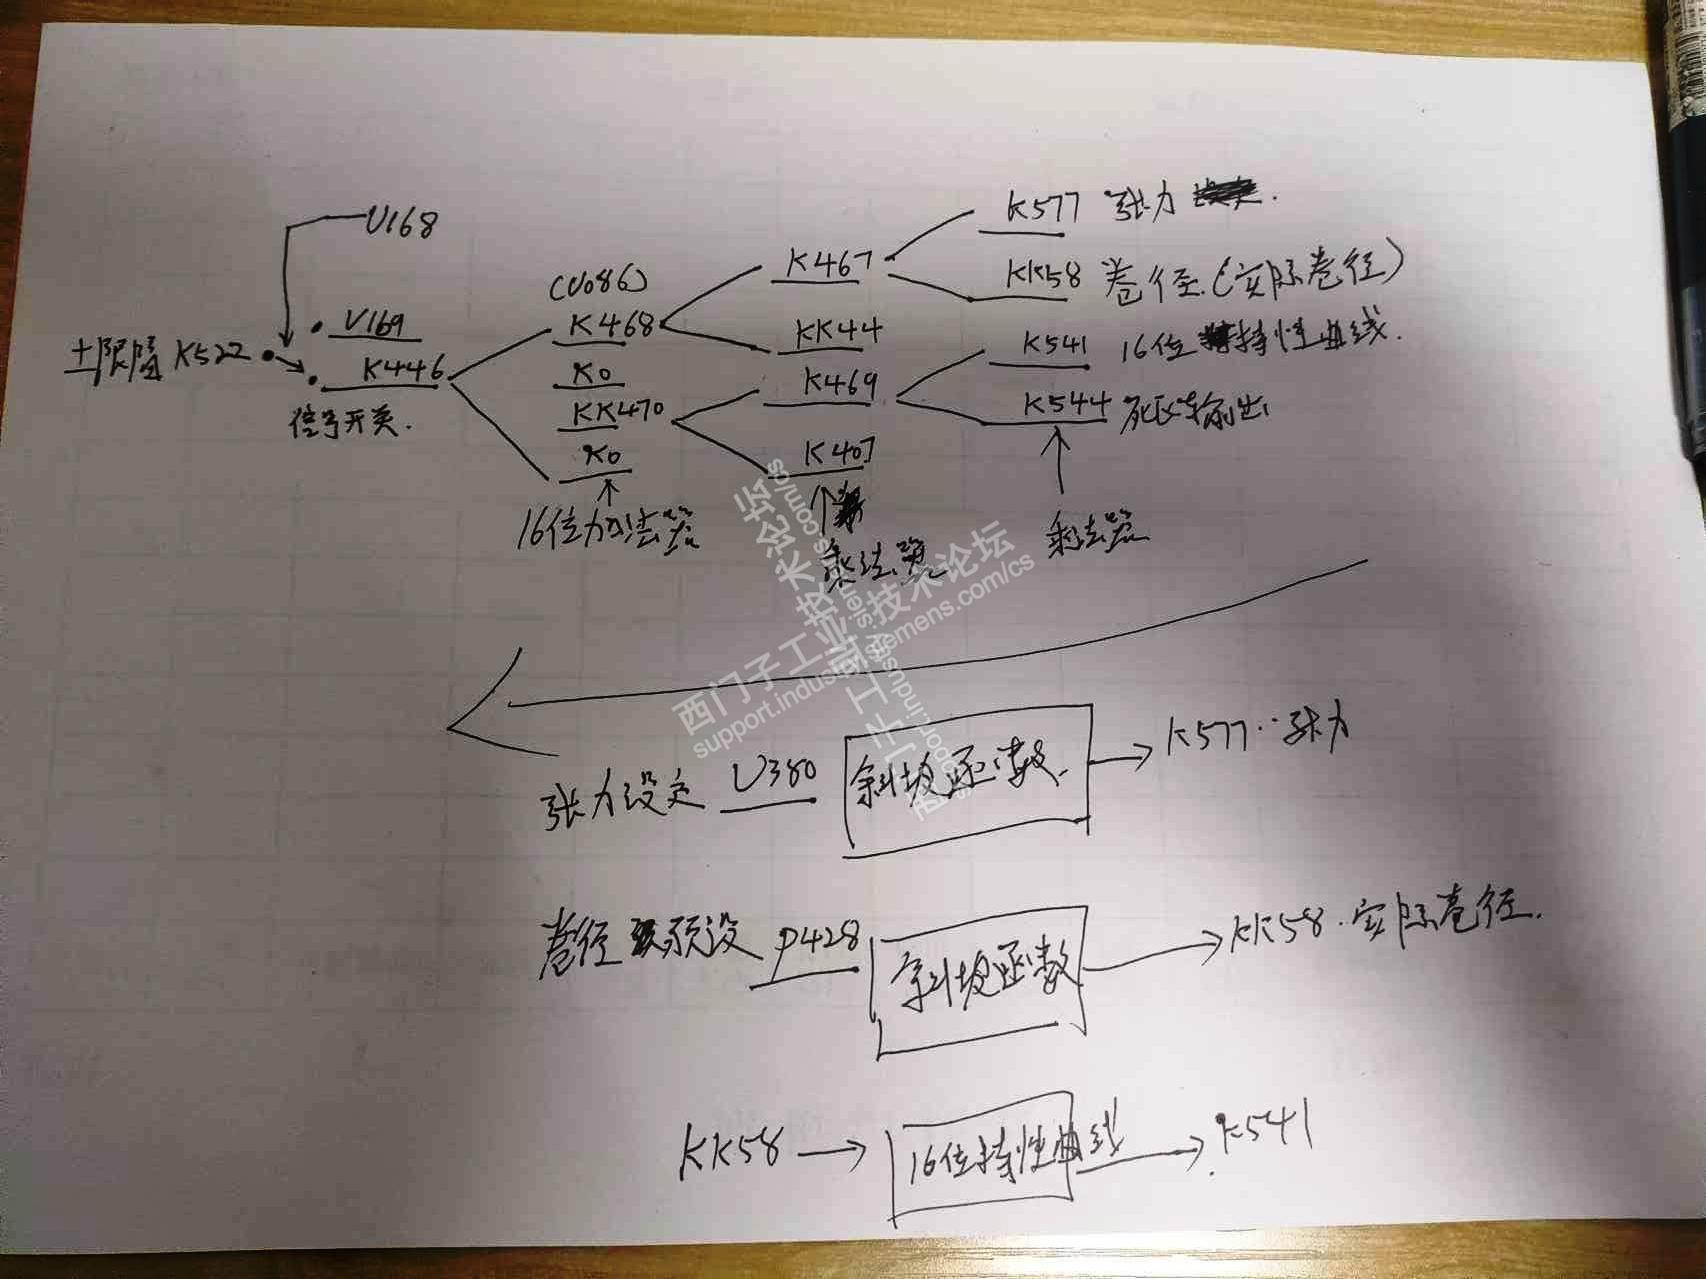 U168
K577 张力
(U086)
K467
KK58 卷径.(实际卷径)
U169
K468
KK44
K541 16位特性曲线.
±限幅 K522
K446
K0
K469
K544 死区输出
信号开关.
KK470
K407
K0
16位加法器
乘法器
乘法器
西门子工业技术论坛
support.industry.siemens.com/cs
张力设定 U380 斜坡函数. K577 : 张力
卷径 预设 P428 斜坡函数 KK58 . 实际卷径.
KK58 16位特性曲线 K541